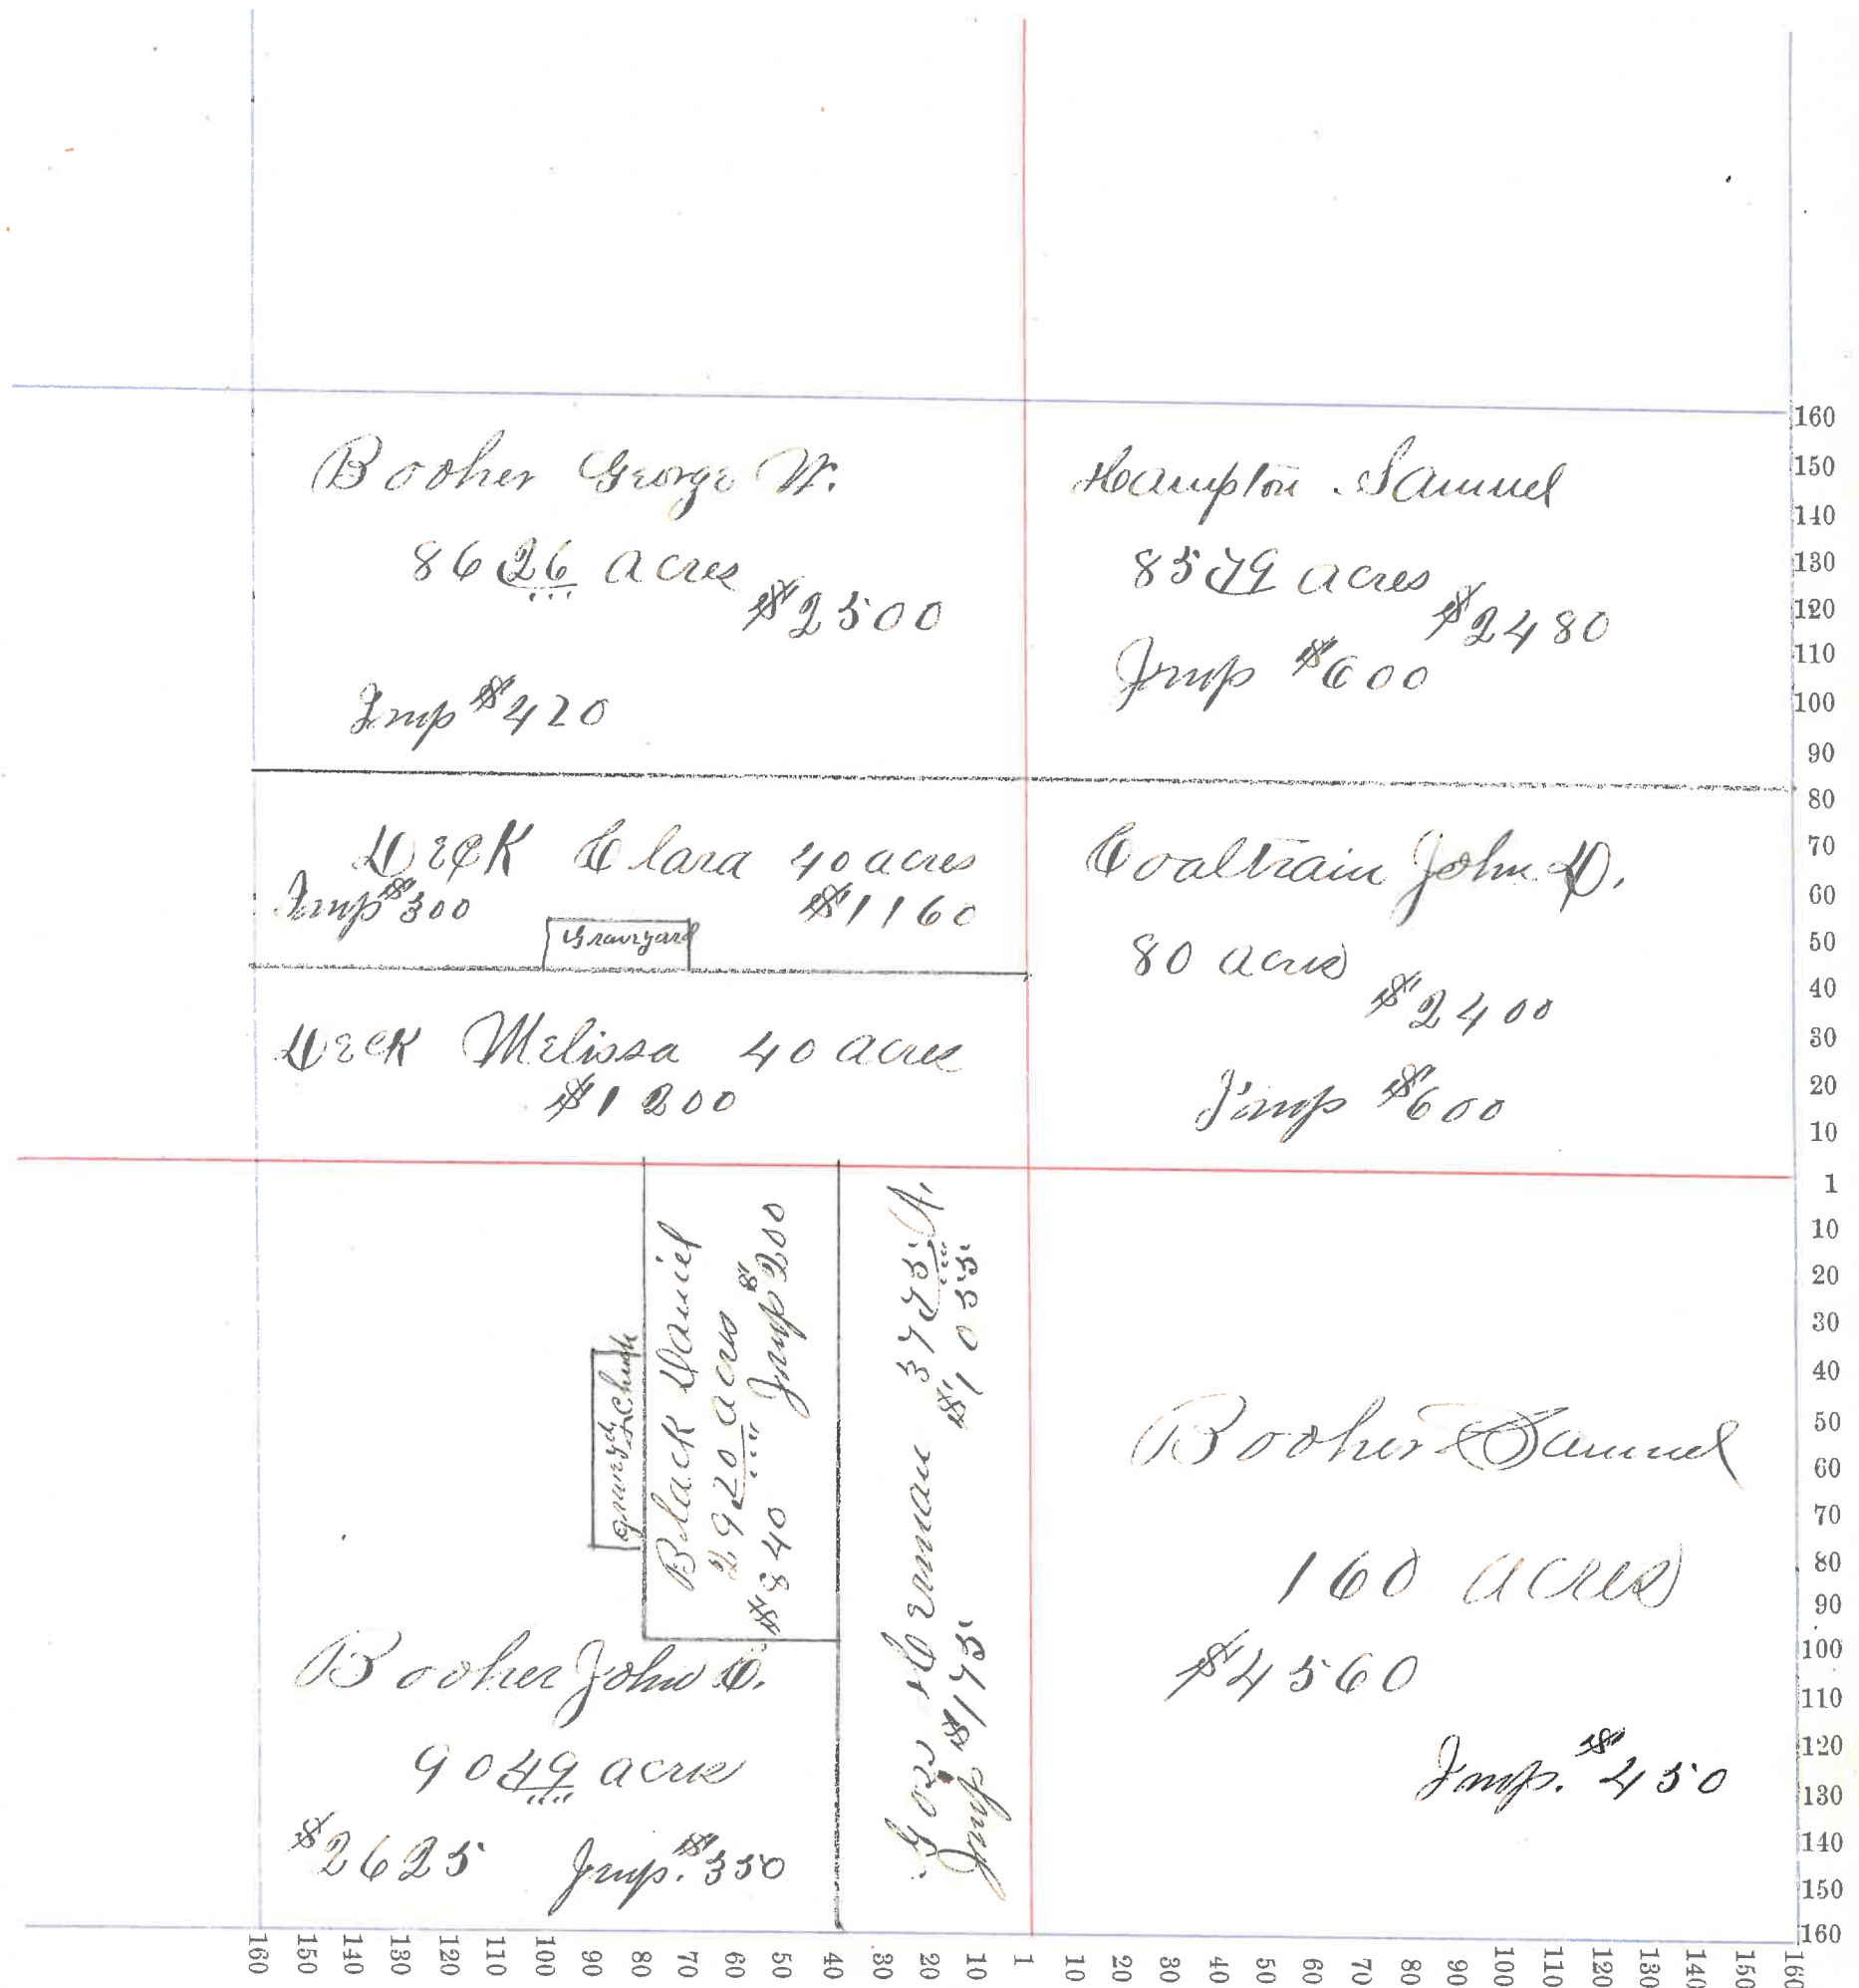 Booher George W.
8626 acres
$2500
Imp $420
Hampton Samuel
8579 acres
$2480
Imp $600
Deck Clara 40 acres
Imp $300 $1160
Graveyard
Deck Melissa 40 acres
$1200
Coaltrain John D.
80 acres
$2400
Imp $600
Black Daniel
2920 acres
$840 Imp $200
Graveyd & Chuch
Herman 3775 A.
Imp $175 $1055
Booher John C.
9049 acres
$2625 Imp. $350
Booher Samuel
160 acres
$4560
Imp. $450
160
150
140
130
120
110
100
90
80
70
60
50
40
30
20
10
1
10
20
30
40
50
60
70
80
90
100
110
120
130
140
150
160
160 150 140 130 120 110 100 90 80 70 60 50 40 30 20 10 1 10 20 30 40 50 60 70 80 90 100 110 120 130 140 150 160